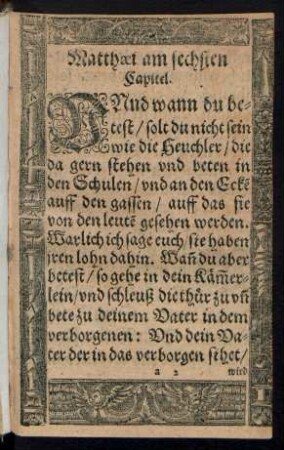 Matthæi am sechsten
Capitel.
VNnd wann du be-
test / solt du nicht sein
wie die Heuchler / die
da gern stehen vnd beten in
den Schulen / vnd an den Eckē
auff den gassen / auff das sie
von den leutē gesehen werden.
Warlich ich sage euch / sie haben
jren lohn dahin. Wañ du aber
betest / so gehe in dein Kãmer-
lein / vnd schleuß die thür zu vñ
bete zu deinem Vater in dem
verborgenen: Vnd dein Va-
ter der in das verborgen sihet /
a 2 wird